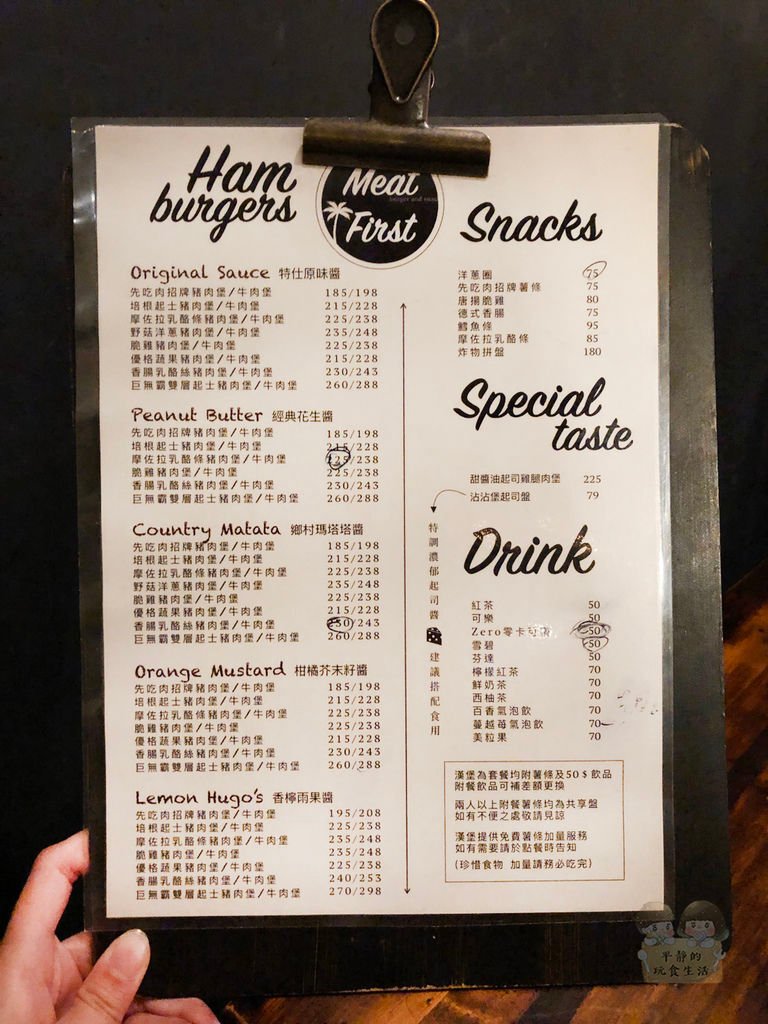 Ham
burgers
Meat
burger and snac
First
Original Sauce 特仕原味醬
先吃肉招牌豬肉堡/牛肉堡 185/198
培根起士豬肉堡/牛肉堡 215/228
摩佐拉乳酪條豬肉堡/牛肉堡 225/238
野菇洋蔥豬肉堡/牛肉堡 235/248
脆雞豬肉堡/牛肉堡 225/238
優格蔬果豬肉堡/牛肉堡 215/228
香腸乳酪絲豬肉堡/牛肉堡 230/243
巨無霸雙層起士豬肉堡/牛肉堡 260/288
Peanut Butter 經典花生醬
先吃肉招牌豬肉堡/牛肉堡 185/198
培根起士豬肉堡/牛肉堡 215/228
摩佐拉乳酪條豬肉堡/牛肉堡 225/238
脆雞豬肉堡/牛肉堡 225/238
香腸乳酪絲豬肉堡/牛肉堡 230/243
巨無霸雙層起士豬肉堡/牛肉堡 260/288
Country Matata 鄉村瑪塔塔醬
先吃肉招牌豬肉堡/牛肉堡 185/198
培根起士豬肉堡/牛肉堡 215/228
摩佐拉乳酪條豬肉堡/牛肉堡 225/238
野菇洋蔥豬肉堡/牛肉堡 235/248
脆雞豬肉堡/牛肉堡 225/238
優格蔬果豬肉堡/牛肉堡 215/228
香腸乳酪絲豬肉堡/牛肉堡 230/243
巨無霸雙層起士豬肉堡/牛肉堡 260/288
Orange Mustard 柑橘芥末籽醬
先吃肉招牌豬肉堡/牛肉堡 185/198
培根起士豬肉堡/牛肉堡 215/228
摩佐拉乳酪條豬肉堡/牛肉堡 225/238
脆雞豬肉堡/牛肉堡 225/238
優格蔬果豬肉堡/牛肉堡 215/228
香腸乳酪絲豬肉堡/牛肉堡 230/243
巨無霸雙層起士豬肉堡/牛肉堡 260/288
Lemon Hugo's 香檸雨果醬
先吃肉招牌豬肉堡/牛肉堡 195/208
培根起士豬肉堡/牛肉堡 225/238
摩佐拉乳酪條豬肉堡/牛肉堡 235/248
脆雞豬肉堡/牛肉堡 235/248
優格蔬果豬肉堡/牛肉堡 225/238
香腸乳酪絲豬肉堡/牛肉堡 240/253
巨無霸雙層起士豬肉堡/牛肉堡 270/298
Snacks
洋蔥圈 75
先吃肉招牌薯條 75
唐揚脆雞 80
德式香腸 75
鱈魚條 95
摩佐拉乳酪條 85
炸物拼盤 180
Special
taste
甜醬油起司雞腿肉堡 225
沾沾堡起司盤 79
特調濃郁起司醬 建議搭配食用
Drink
紅茶 50
可樂 50
Zero零卡可樂 50
雪碧 50
芬達 50
檸檬紅茶 70
鮮奶茶 70
西柚茶 70
百香氣泡飲 70
蔓越莓氣泡飲 70
美粒果 70
漢堡為套餐均附薯條及50$飲品
附餐飲品可補差額更換
兩人以上附餐薯條均為共享盤
如有不便之處敬請見諒
漢堡提供免費薯條加量服務
如有需要請於點餐時告知
(珍惜食物 加量請務必吃完)
平靜的
玩食生活